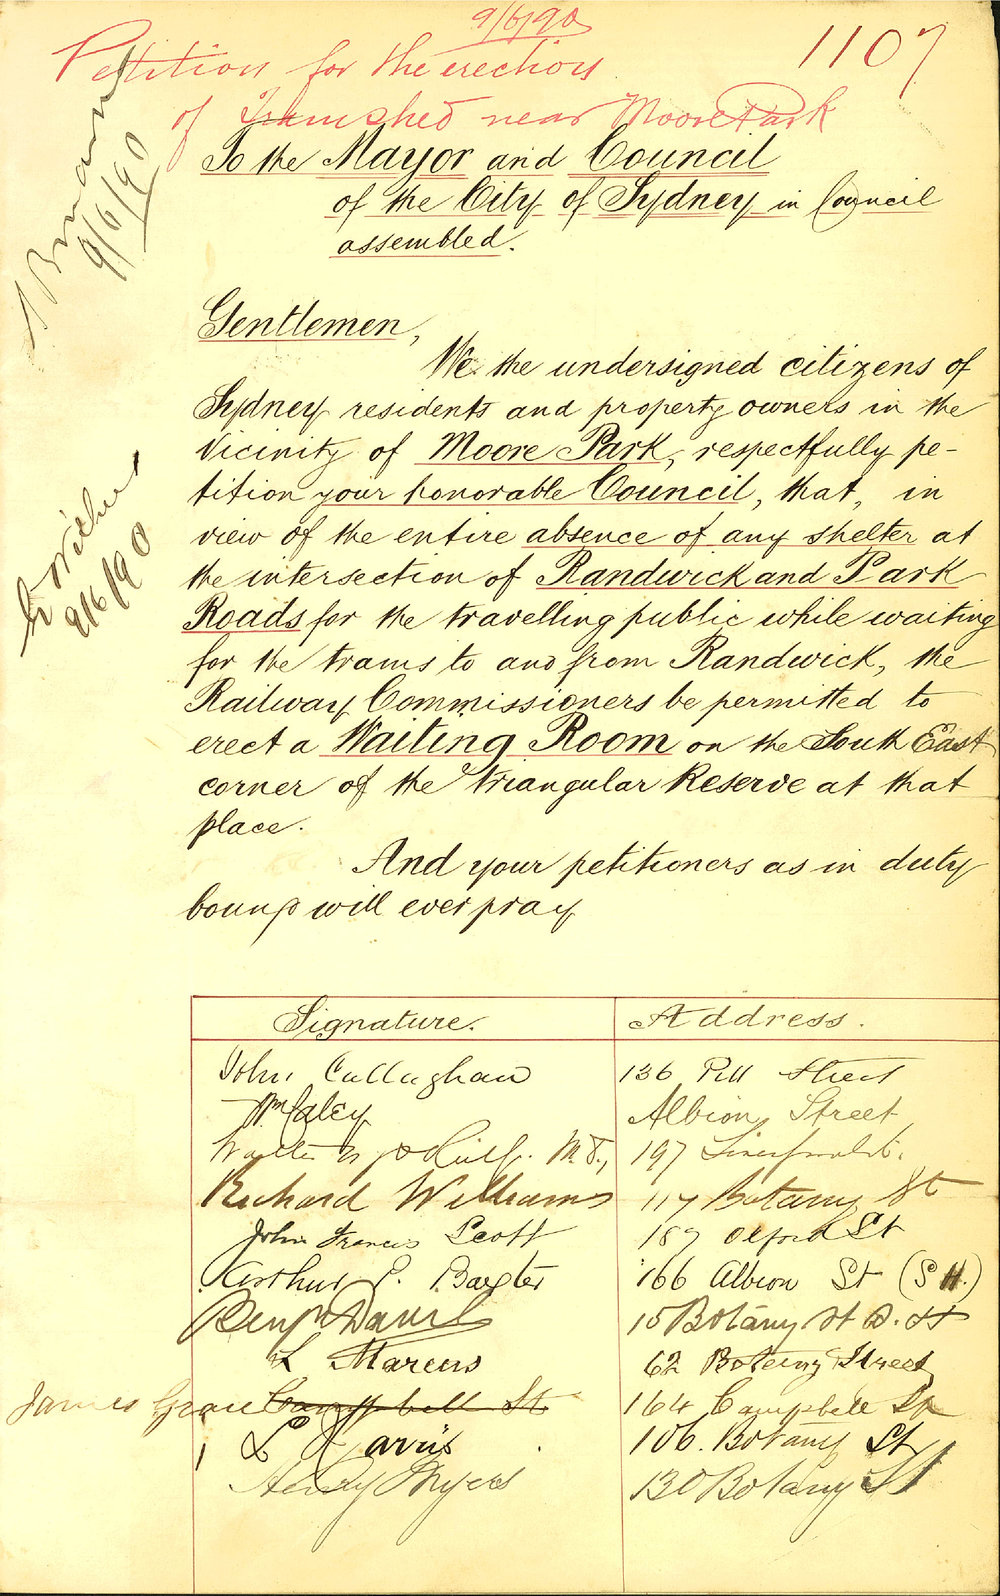 9/6/90
1107
Petition for the erection
of Tramshed near Moore Park
To the Mayor and Council
of the City of Sydney in Council
assembled.
9/6/90
Gentlemen,
We the undersigned citizens of
Sydney residents and property owners in the
vicinity of Moore Park, respectfully pe-
tition your honorable Council, that, in
view of the entire absence of any shelter at
the intersection of Randwick and Park
Roads for the travelling public while waiting
for the trams to and from Randwick, the
Railway Commissioners be permitted to
erect a Waiting Room on the South East
corner of the triangular Reserve at that
place.
9/6/90
And your petitioners as in duty
bound will ever pray
Signature. Address.
John Callaghan 136 Pitt Street
Wm Caley Albion Street
Walter M.D., 197 Liverpool St.
Richard Williams 117 Botany St
John Francis Scott 187 Oxford St
Arthur P. Baxter 166 Albion St (S H.)
Benj n Daniel 15 Botany St
L Marcus 62 Botany Street
James Campbell St 164 Campbell St
Jarvis 106. Botany St
Henry Myers 130 Botany St